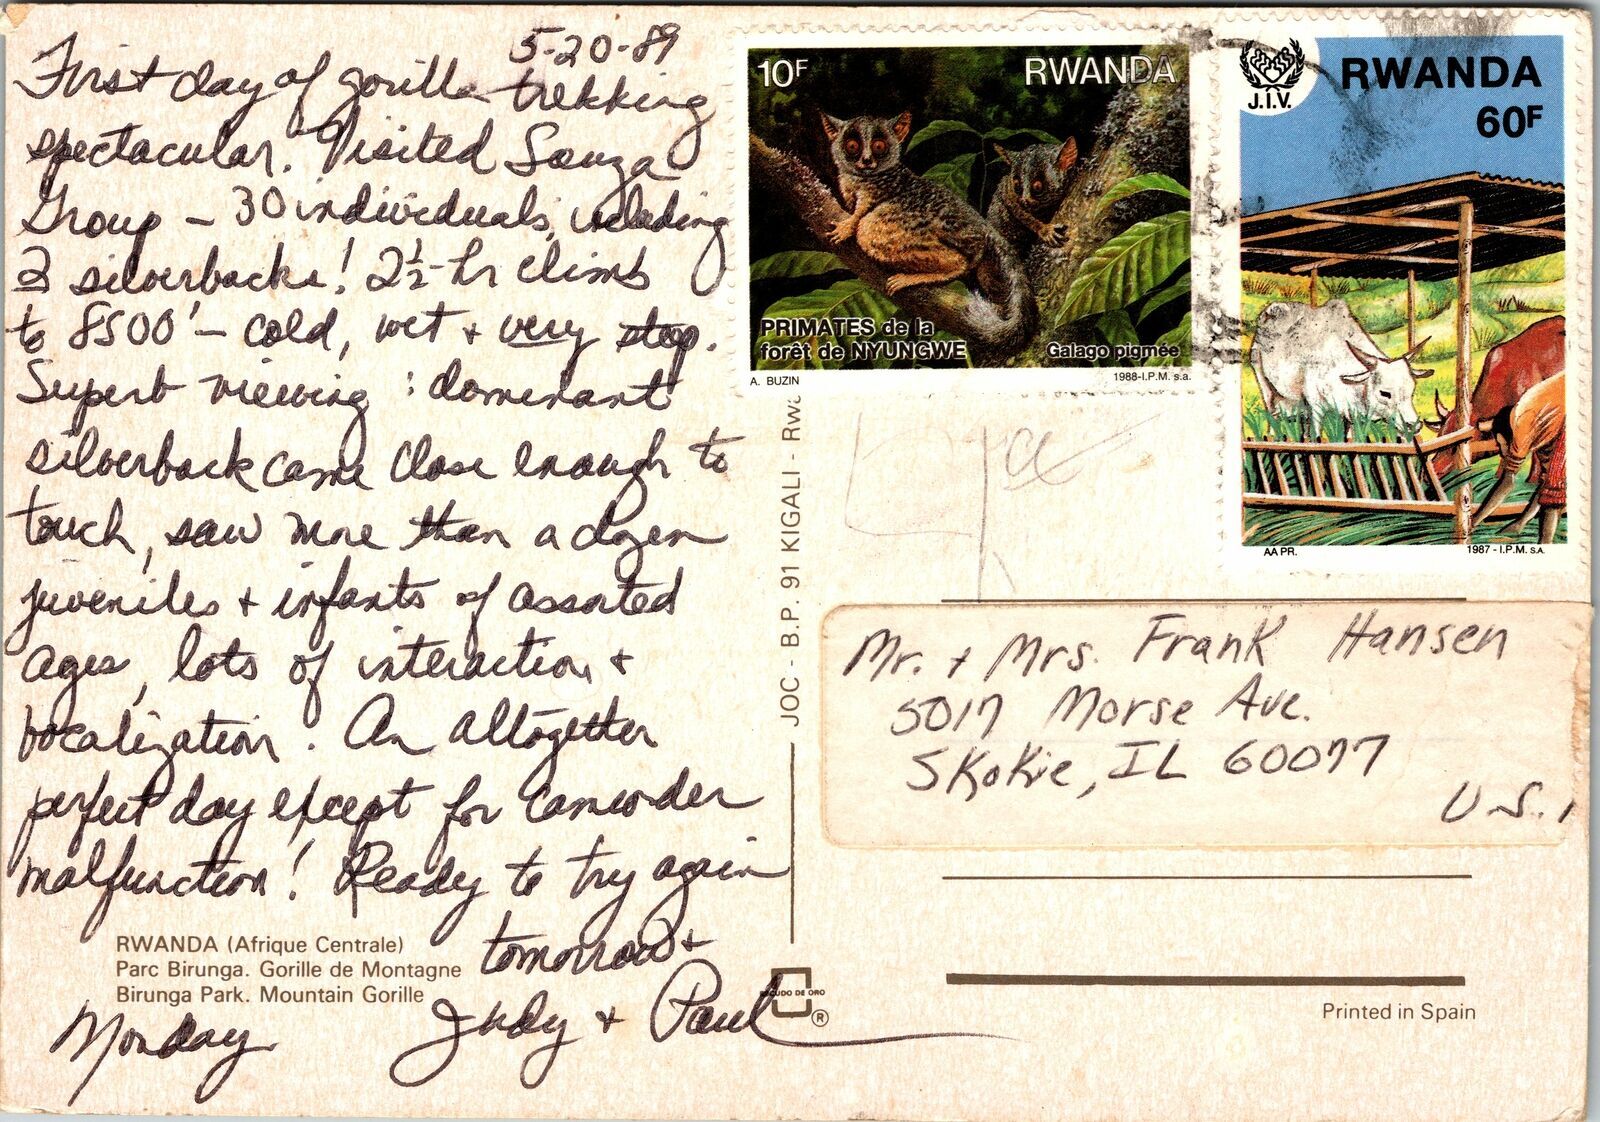 5-20-89
First day of gorilla trekking
spectacular. Visited Souza
Group – 30 individuals, including
2 silverbacks! 2½-hr climb
to 8500' – cold, wet + very steep.
Superb viewing: dominant
silverback came close enough to
touch, saw more than a dozen
juveniles + infants of assorted
ages, lots of interaction +
vocalization. An altogether
perfect day except for camcorder
malfunction! Ready to try again
tomorrow +
Monday
Judy + Paul
RWANDA (Afrique Centrale)
Parc Birunga. Gorille de Montagne
Birunga Park. Mountain Gorille
JOC - B.P. 91 KIGALI - Rwa
ESCUDO DE ORO
®
10F RWANDA
PRIMATES de la
forêt de NYUNGWE
Galago pigmée
A. BUZIN 1988-I.P.M. s.a.
J.I.V.
RWANDA
60F
AA PR. 1987 - I.P.M. S.A.
Mr. + Mrs. Frank Hansen
5017 Morse Ave.
Skokie, IL 60077
U.S.
Printed in Spain